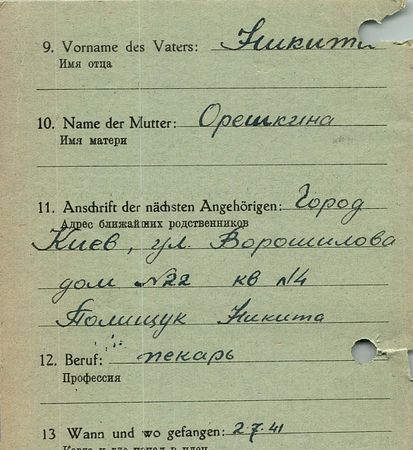 9. Vorname des Vaters: Никита
Имя отца
10. Name der Mutter: Орешкина
Имя матери
11. Anschrift der nächsten Angehörigen: Город
Адрес ближайших родственников
Киев, ул. Ворошилова
дом №22 кв №4
Полищук Никита
12. Beruf: пекарь
Профессия
13 Wann und wo gefangen: 2.7.41
Когда и где попал в плен